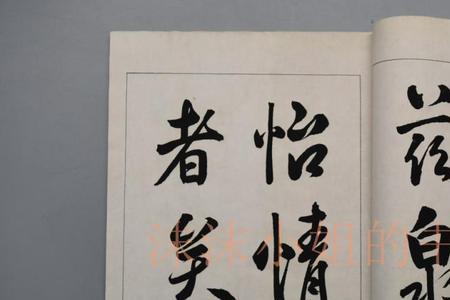 怡情
者矣
沫沫小姐的